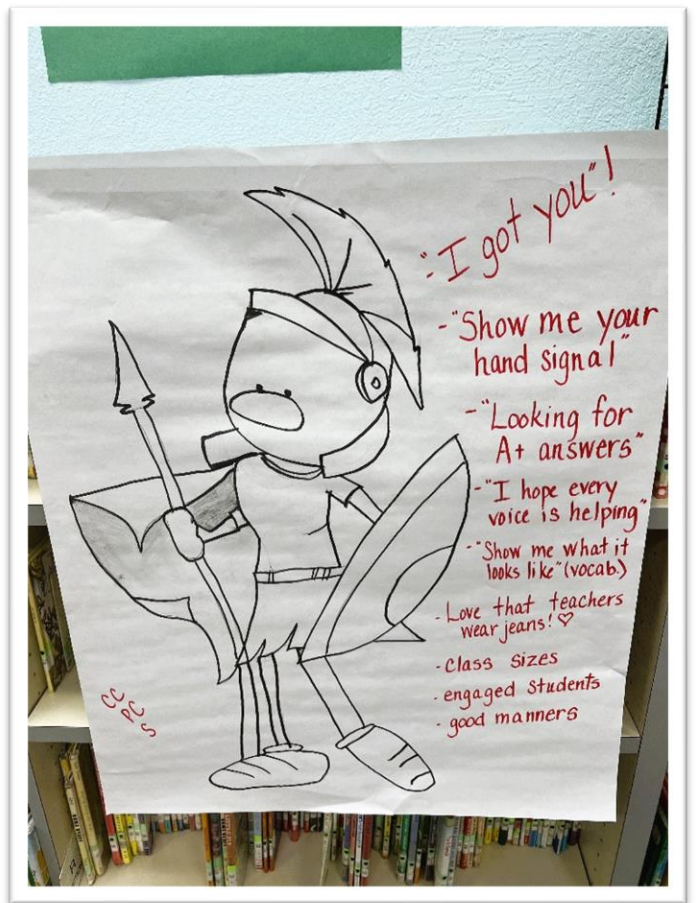 - "I got you"!
- "Show me your
hand signal"
- "Looking for
A+ answers"
- "I hope every
voice is helping"
- "Show me what it
looks like" (vocab.)
- Love that teachers
wear jeans! ♡
- class sizes
- engaged students
- good manners
CC
PC
S